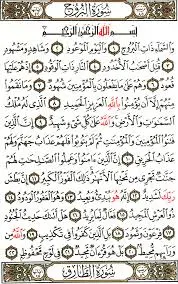 سُورَةُ البُرُوجِ
بِسْمِ اللَّهِ الرَّحْمَٰنِ الرَّحِيمِ
وَالسَّمَاءِ ذَاتِ الْبُرُوجِ ١ وَالْيَوْمِ الْمَوْعُودِ ٢ وَشَاهِدٍ وَمَشْهُودٍ
٣ قُتِلَ أَصْحَٰبُ الْأُخْدُودِ ٤ النَّارِ ذَاتِ الْوَقُودِ ٥ إِذْ هُمْ عَلَيْهَا
قُعُودٌ ٦ وَهُمْ عَلَىٰ مَا يَفْعَلُونَ بِالْمُؤْمِنِينَ شُهُودٌ ٧ وَمَا نَقَمُوا
مِنْهُمْ إِلَّا أَن يُؤْمِنُوا بِاللَّهِ الْعَزِيزِ الْحَمِيدِ ٨ الَّذِي لَهُ مُلْكُ
السَّمَٰوَٰتِ وَالْأَرْضِ وَاللَّهُ عَلَىٰ كُلِّ شَيْءٍ شَهِيدٌ ٩ إِنَّ الَّذِينَ
فَتَنُوا الْمُؤْمِنِينَ وَالْمُؤْمِنَٰتِ ثُمَّ لَمْ يَتُوبُوا فَلَهُمْ عَذَابُ جَهَنَّمَ وَلَهُمْ
عَذَابُ الْحَرِيقِ ١٠ إِنَّ الَّذِينَ ءَامَنُوا وَعَمِلُوا الصَّٰلِحَٰتِ لَهُمْ
جَنَّٰتٌ تَجْرِي مِن تَحْتِهَا الْأَنْهَٰرُ ذَٰلِكَ الْفَوْزُ الْكَبِيرُ ١١ إِنَّ بَطْشَ
رَبِّكَ لَشَدِيدٌ ١٢ إِنَّهُ هُوَ يُبْدِئُ وَيُعِيدُ ١٣ وَهُوَ الْغَفُورُ الْوَدُودُ ١٤
ذُو الْعَرْشِ الْمَجِيدُ ١٥ فَعَّالٌ لِّمَا يُرِيدُ ١٦ هَلْ أَتَىٰكَ حَدِيثُ الْجُنُودِ
١٧ فِرْعَوْنَ وَثَمُودَ ١٨ بَلِ الَّذِينَ كَفَرُوا فِي تَكْذِيبٍ ١٩ وَاللَّهُ مِن
وَرَائِهِم مُّحِيطٌ ٢٠ بَلْ هُوَ قُرْءَانٌ مَّجِيدٌ ٢١ فِي لَوْحٍ مَّحْفُوظٍ ٢٢
سُورَةُ الطَّارِقِ